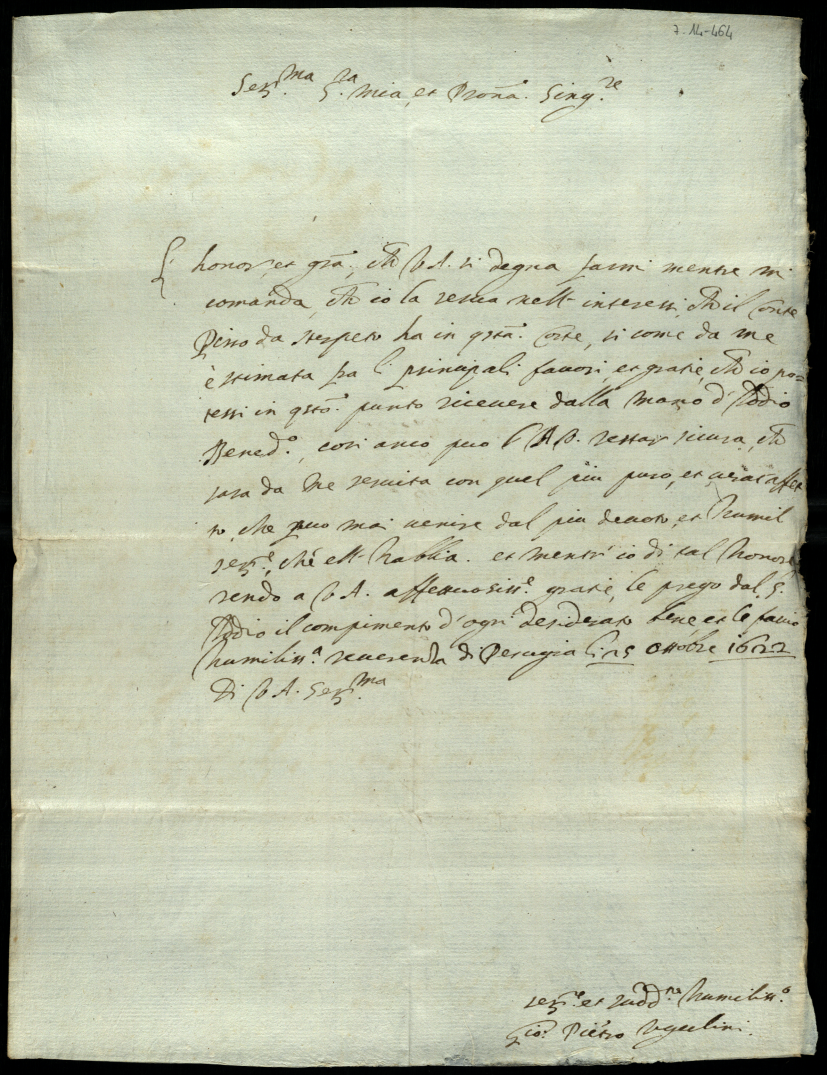 7-14-464
Ser.ma S.ra mia, et Pron̄a. Sing.re
L'honor, et gr̄a, ch̄ V.A. si degna farmi mentre mi
comanda, ch̄ io la serva nell' interessi, ch̄ il Conte
Pirro da ha in qst̄a. Corte, si come da me
è stimata fra li principali favori, et gratie, ch̄ io po=
tessi in qst̄o. punto ricevere dalla mano d'Iddio
Bened.o, cosi anco può l'A.V. restar sicura, ch̄
sara da me servita con quel più puro, et verace affet
to, che può mai venire dal più devoto, et humil
ser.re, ché ell' habbia. et mentr' io di tal honore
rendo a V.A. affettuosiss.e gratie, le prego dal S.
Iddio il compimento d'ogni desiderato bene et le faccio
humiliss.a reverenza di Perugia li 25 ottobre 1622
Di V.A. Ser.ma
ser.re et sudd.to humiliss.o
Gio. Pietro Ugolini.